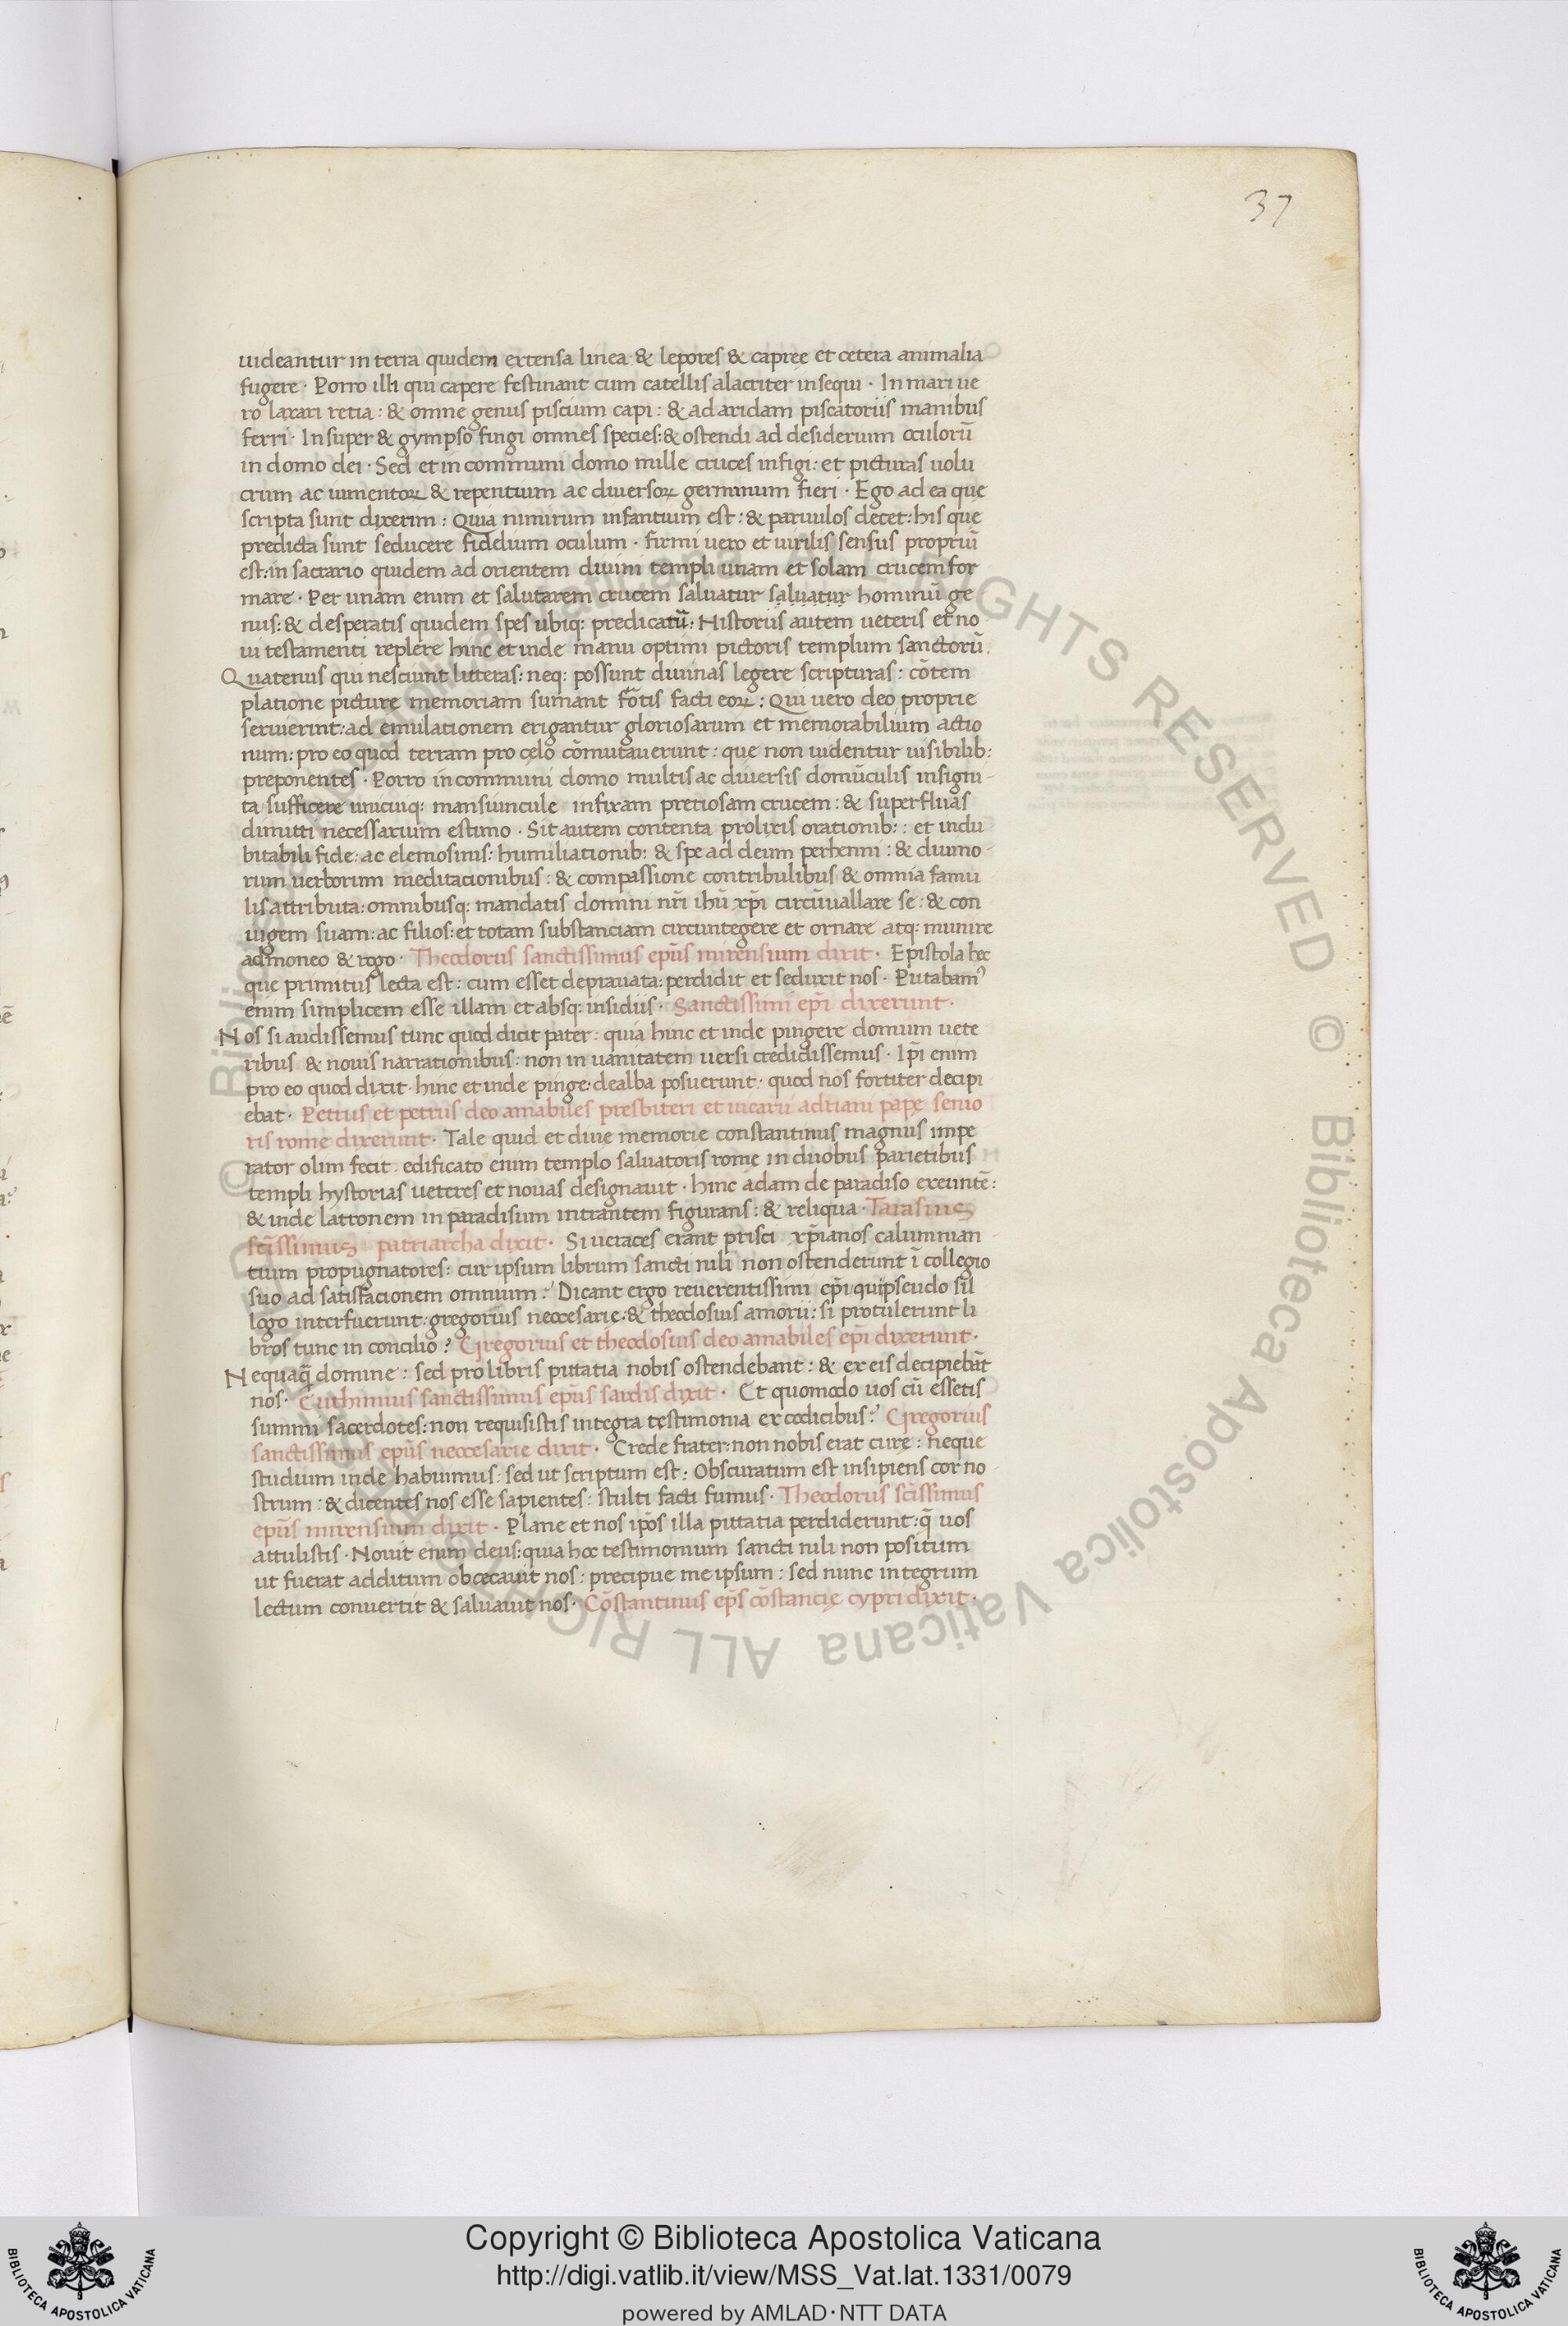 37
uideantur in terra quidem extensa linea: & lepores & capree et cetera animalia
fugere · Porro illi qui capere festinant cum catellis alacriter insequi · In mari ue
ro laxari retia : & omne genus piscium capi : & ad aridam piscatoriis manibus
ferri · Insuper & gympso fingi omnes species: & ostendi ad desiderium oculorū
in domo dei · Sed et in communi domo mille cruces infigi: et picturas uolu
crum ac iumentoꝝ & repentium ac diuersoꝝ germinum fieri · Ego ad ea que
scripta sunt dixerim : Quia nimirum infantium est : & paruulos decet: his que
predicta sunt seducere fidelium oculum · firmi uero et uirilis sensus propriū
est: in sacrario quidem ad orientem diuini templi unam et solam crucem for
mare · Per unam enim et salutarem crucem saluatur saluatur hominū ge
nus: & desperatis quidem spes ubiq: predicatū: Historiis autem ueteris et no
ui testamenti replere hinc et inde manu optimi pictoris templum sanctorū.
Quatenus qui nesciunt litteras: neq: possunt diuinas legere scripturas : cōtem
platione picture memoriam sumant fōtis facti eoꝝ : Qui uero deo proprie
seruierint: ad emulationem erigantur gloriosarum et memorabilium actio
num: pro eo quod terram pro celo cōmutauerunt : que non uidentur uisibilib:
preponentes · Porro in communi domo multis ac diuersis domūculis insigni-
ta sufficere unicuiq: mansiuncule infixam pretiosam crucem : & superfluas
dimitti necessarium estimo · Sit autem contenta prolixis orationib: : et indu
bitabili fide: ac elemosinis: humiliationib: & spe ad deum perhenni : & diuino-
rum uerborum meditacionibus : & compassione contribulibus & omnia famu
lis attributa: omnibusq: mandatis domini nr̄i ihū xp̄i circūuallare se : & con
iugem suam: ac filios: et totam substanciam circuntegere et ornare atq: munire
admoneo & rogo · Theodorus sanctissimus ep̄us mirensium dixit · Epistola hec
que primitus lecta est : cum esset deprauata: perdidit et seduxit nos · Putabamꝰ
enim simplicem esse illam et absq: insidiis · Sanctissimi ep̄i dixerunt ·
Nos si audissemus tunc quod dicit pater : quia hinc et inde pingere domum uete
ribus & nouis narrationibus: non in uanitatem uersi credidissemus · Ip̄i enim
pro eo quod dixit · hinc et inde pinge: dealba posuerunt · quod nos fortiter decipi
ebat · Petrus et petrus deo amabiles presbiteri et uicarii adriani pape senio
ris rome dixerunt · Tale quid et diue memorie constantinus magnus impe
rator olim fecit. edificato enim templo saluatoris rome in duobus parietibus
templi hystorias ueteres et nouas designauit · hinc adam de paradiso exeuntē:
& inde latronem in paradisum intrantem figurans : & reliqua · Tarasius
sc̄issimus patriarcha dixit · Si ueraces erant prisci xp̄ianos calumnian-
tium propugnatores : cur ipsum librum sancti nili non ostenderunt ī collegio
suo ad satisfacionem omnium ? Dicant ergo reuerentissimi ep̄i qui pseudo sil
logo interfuerunt: gregorius neocesarie: & theodosius amorii: si protulerunt li
bros tunc in concilio ? Gregorius et theodosius deo amabiles ep̄i dixerunt ·
Nequaq̄ domine : sed pro libris pittatia nobis ostendebant : & ex eis decipiebāt
nos · Euthimius sanctissimus ep̄us sardis dixit · Et quomodo uos cū essetis
summi sacerdotes: non requisistis integra testimonia ex codicibus ? Gregorius
sanctissimus ep̄us neocesarie dixit · Crede frater: non nobis erat cure : neque
studium inde habuimus : sed ut scriptum est : Obscuratum est insipiens cor no
strum : & dicentes nos esse sapientes : stulti facti sumus · Theodorus sc̄issimus
ep̄us mirensium dixit · Plane et nos ip̄os illa pittatia perdiderunt: q̄ uos
attulistis · Nouit enim deus: quia hoc testimonium sancti nili non positum
ut fuerat additum obcecauit nos : precipue me ipsum : sed nunc integrum
lectum conuertit & saluauit nos · Cōstantinus ep̄s cōstancie cypri dixit ·
Copyright © Biblioteca Apostolica Vaticana
http://digi.vatlib.it/view/MSS_Vat.lat.1331/0079
powered by AMLAD·NTT DATA